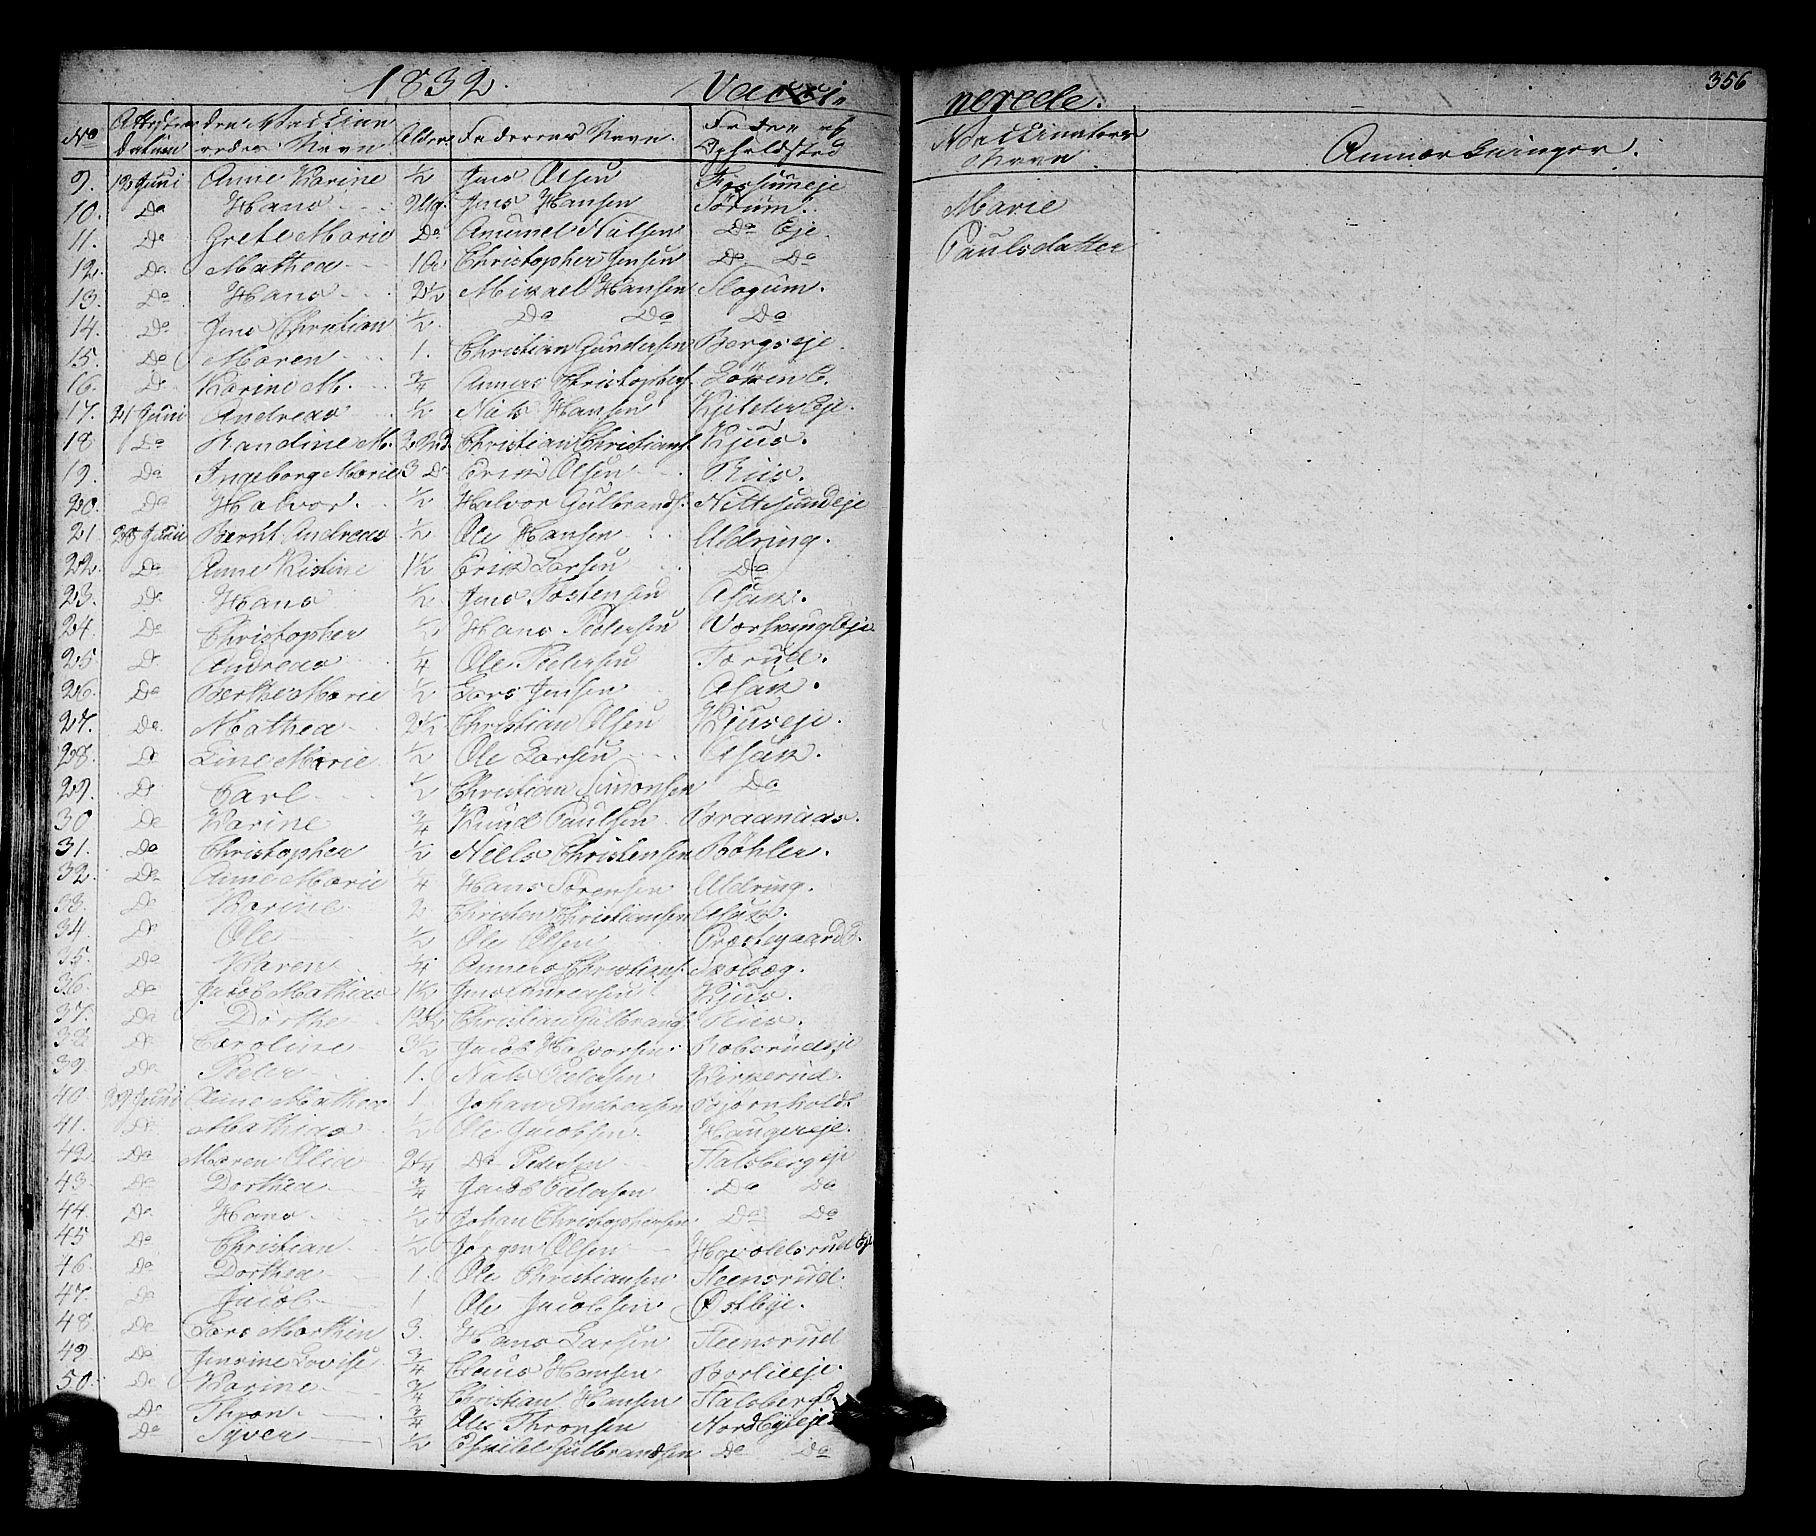 1832. Vacci-
No Attestens datum den Vaccine redes Navn Alder Federens Navn. Federens Opholdsted
9. 19 Juni Anne Karine ½ Jens Olsen Fossumeje
10. Do Hans 2 Jens Hansen Sörum.
11. Do Grete Marie Do Nilsen Do Eje.
12. Do Mathea Christopher Jensen Do Do
13. Do Hans 2½ Mikael Hansen Slogum.
14. Do Jens Christian ½ Do Do Do
15. Do Maren 1. Christian Gundersen Bergseje.
16. Do Karine M. ¾ Anners Christophers.
17. 21 Juni Andreas ½ Niels Hansen Kjelder Eje.
18 Do Randine M. Christian Christians. Kjus.
19. Do Ingeborg Marie 3 Do Erik Olsen Riis.
20. Do Halvor. ½ Halvor Gulbrands. Nittesundeje
21 Juni Bernt Andreas ½ Ole Hansen Aldring.
22. Do Anne Kistine 1½ Erik Larsen Do
23. Do Hans ½ Jens Tostensen Asak.
24. Do Christopher ½ Hans Pedersen Eje.
25. Do Andreas ¼ Ole Pedersen Torud.
26. Do Berthe Marie ½ Lars Jensen Asak.
27. Do Mathea 2½ Christian Olsen Kjuseje.
28. Do Line Marie ½ Ole Larsen Asak.
29. Do Carl ½ Christian Simonsen Do
30 Do Karine ¾ Knud Paulsen Braanaas.
31. Do Christopher ½ Niells Christensen Böhler.
32. Do Anne Marie ¼ Hans Sörensen Aldring.
33. Do Karine 2 Christen Christiansen Asak.
34. Do Ole ½ Ole Olsen PræstegaardE.
35. Do Karen ¼ Anners Christians. Skolvæg.
36. Do Jacob Mathias 1½ Jens Andersen Kjus.
37. Do Dorthe Christian Gulbrands. Riis.
38 Do Caroline 3½ Jacob Halvorsen. Robsrudeje
39. Do Peder 1. Niels Pedersen Kirkerud.
40. 29 Juni Anne Mathea 1. Johan Andreasen Bjornholdt
41. Do Mathias ½ Ole Jacobsen. Haugereje.
42. Do Maren Olia 2¼ Do Pedersen Stalsbergeje
43. Do Dorthea ¾ Jacob Pedersen Do Do
44. Do Hans ½ Johan Christophersen Do Do
45 Do Christian ½ Jörgen Olsen Haraldsrud Eje
46 Do Dorthea 1. Ole Christiansen Steensrud.
47. Do Jacob 1 Ole Jacobsen Østbye.
48. Do Lars Marthin 3. Hans Larsen Steensrud
49 Do Jensine Lovise ¾ Claus Hansen Borlieeje.
50. Do Karine ¾ Christian Hansen Stalsberg
Do Thron ¾ Ole Thronsen Nordbyeje
Do Syver ½ Gulbrandsen Do Do
356
nerede.
Vaccinatörens Navn. Anmærkninger.
Marie
Paulsdatter